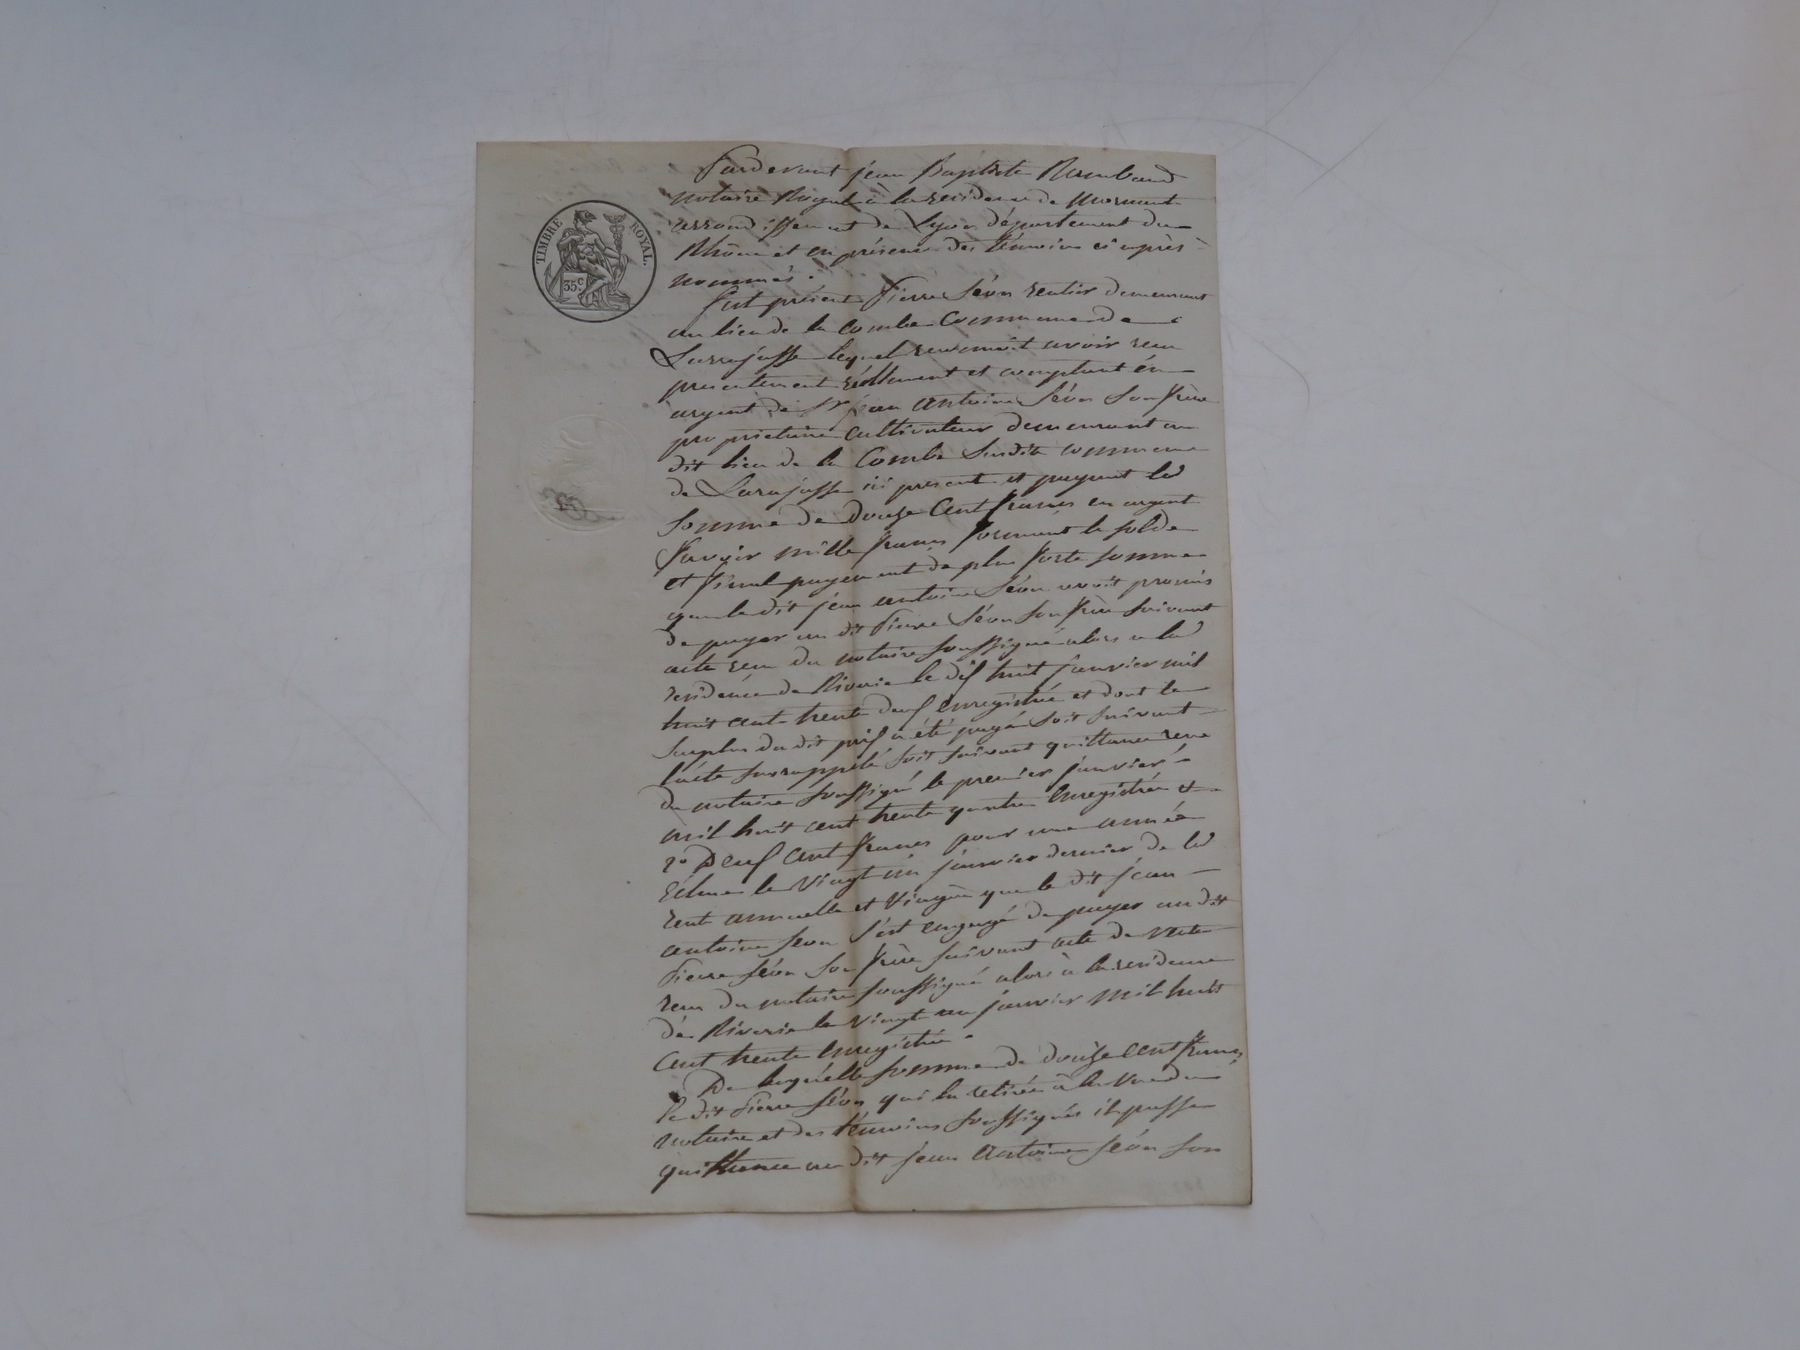 TIMBRE ROYAL.
35 c.
Pardevant jean Baptiste Rambaud
notaire Royal à la residence de Mornant
arrondissement de Lyon département du
Rhône et en présence des témoins ci après
nommés.
Fut présent Pierre Séon rentier demeurant
au lieu de la Combe Commune de
Larrajasse lequel reconnoit avoir reçu
presentement réellement et comptant én
argent de Sr jean Antoine Séon son frère
propriétaire cultivateur demeurant au
dit lieu de la Combe susdite commune
de Larajasse ici présent et payant la
somme de douze Cent francs en argent
savoir mille francs formant le solde
et final payement de plus forte somme
que le dit jean antoine Séon avoit promis
de payer au dit Pierre Séon son frère suivant
acte reçu du notaire soussigné alors a la
residénce de Riverie le dix huit janvier mil
huit cent trente deux enregistré et dont le
surplus du dit prix a été payé soit suivant
l'acte susrappelé soit suivant quittance reçue
du notaire soussigné le premier janvier
mil huit cent trente quatre enregistrée &
2º Deux Cent francs pour une année
échue le vingt un janvier dernier de la
rente annuelle et viagère que le dit jean
antoine Séon s'est engagé de payer au dit
Pierre Séon son frère suivant acte de vente
reçu du notaire soussigné alors à la residence
de Riverie le vingt un janvier mil huit
Cent trente enregistré.
De laquélle somme de douze Cent francs,
le dit Pierre Séon qui la retirée à la vue du
notaire et des témoins soussignés il passe
quittance au dit jean Antoine Séon son